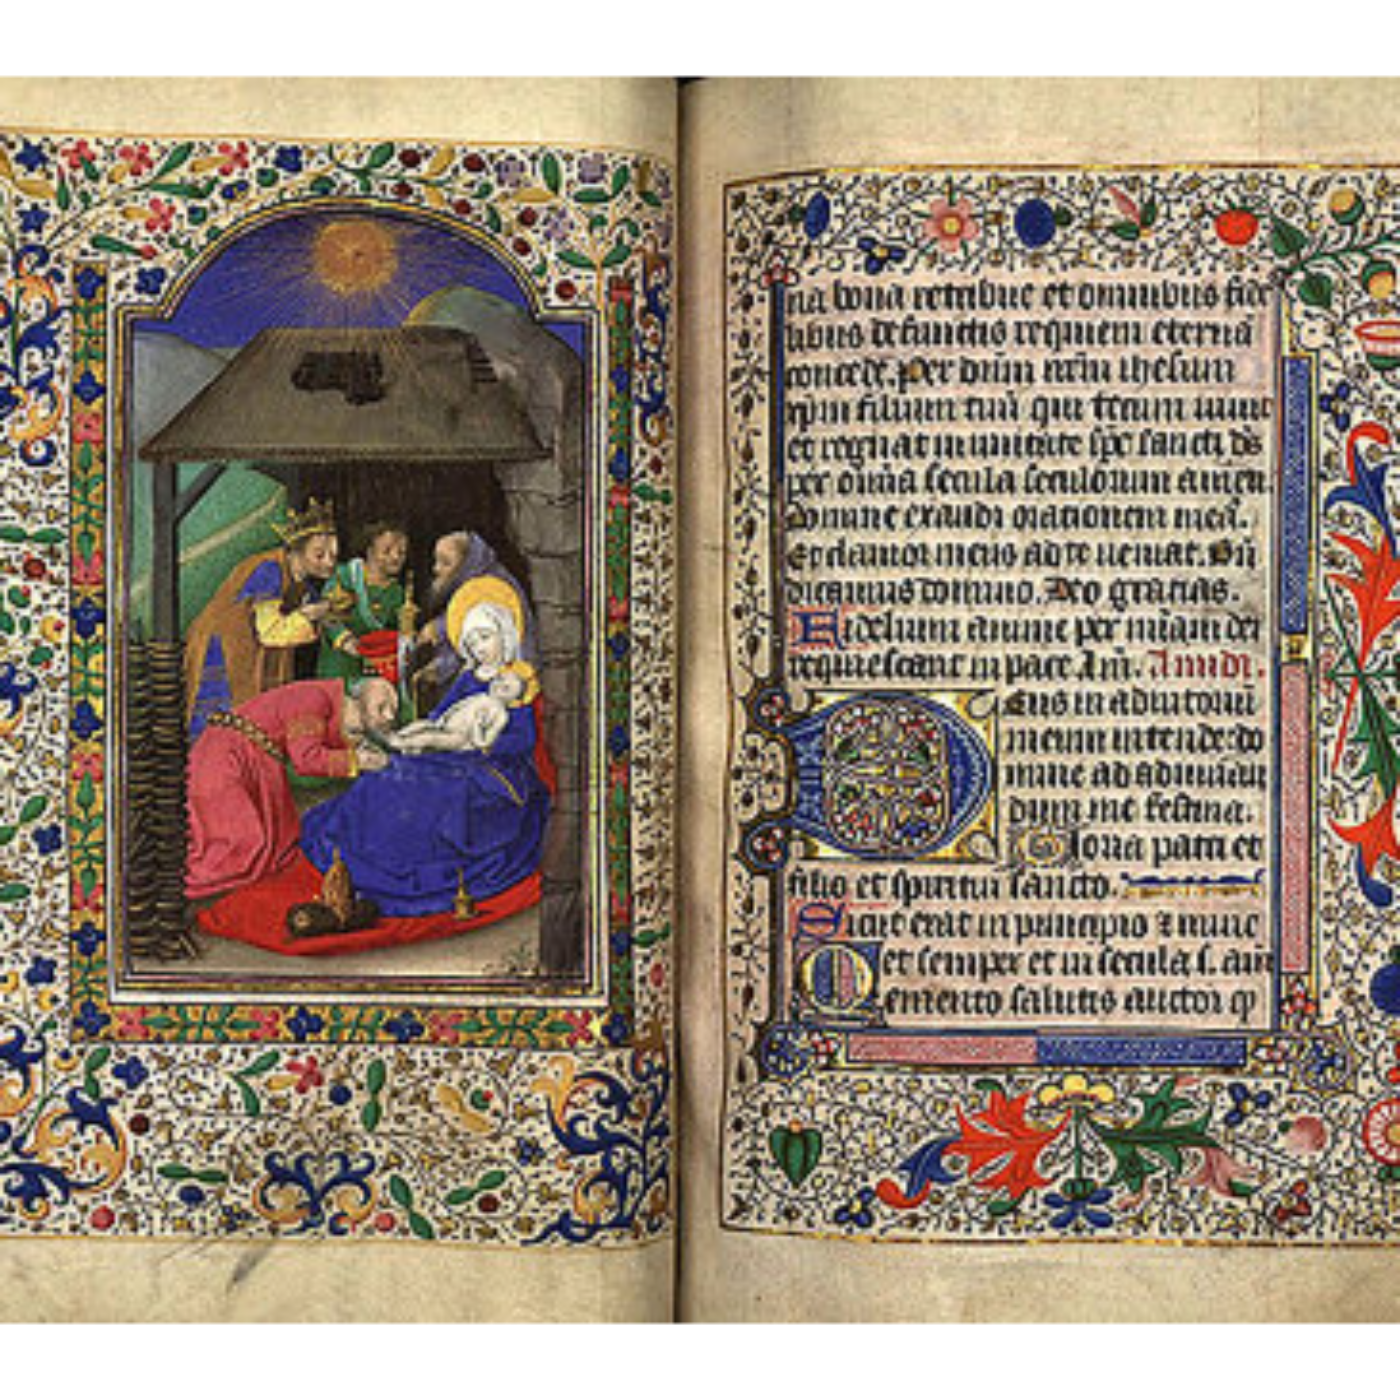 na bona retribue et omnibus fide
libus defunctis requiem eternā
concede. Per dn̄m nr̄m ihesum
xp̄m filium tuū qui tecum uiuit
et regnat in unitate sp̄c sancti d̄s
per om̄ia secula seculorum amen.
Domine exaudi orationem meā.
Et clamor meus ad te ueniat.
dicamus domino. Deo gracias.
Fidelium anime per mīam dei
requiescant in pace. Am̄.
Deus in adiutoriū
meum intende: do
mine ad adiuuan
dum me festina.
Gloria patri et
filio et spiritui sancto.
Sicut erat in principio & nunc
et semper et in secula s. am̄
Memento salutis auctor q̄